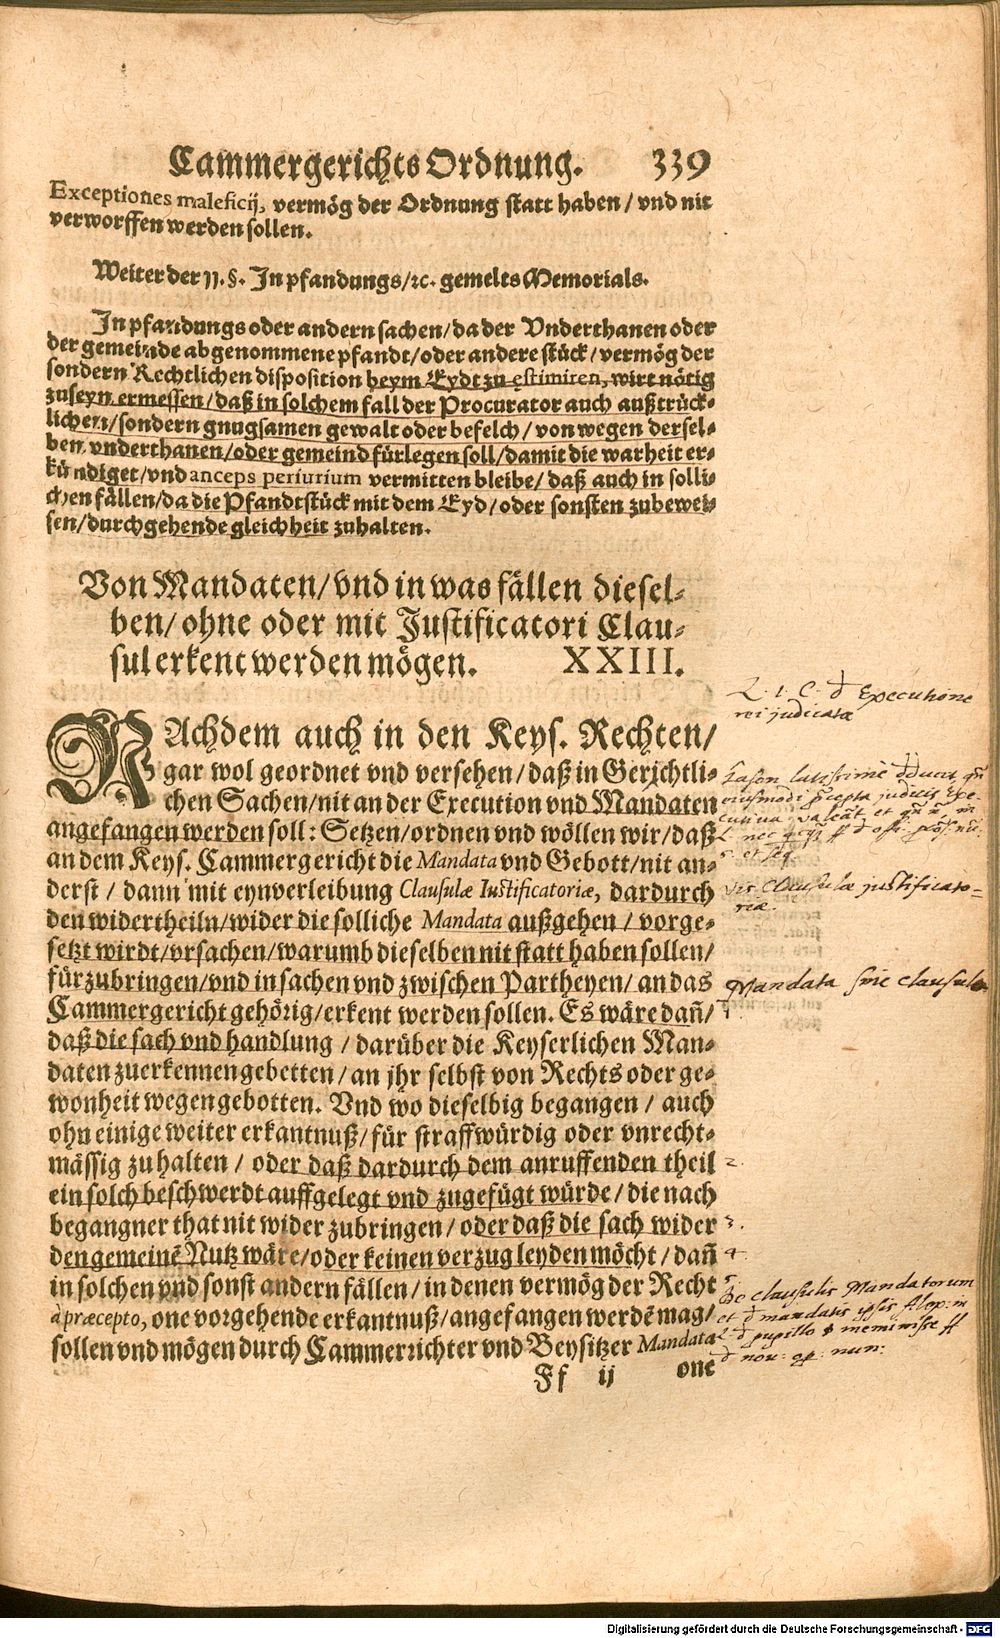 Cammergerichts Ordnung. 339
Exceptiones maleficij, vermög der Ordnung statt haben / vnd nit
verworffen werden sollen.
Weiter der 11. §. In pfandungs / ꝛc. gemelts Memorials.
In pfandungs oder andern sachen / da der Vnderthanen oder
der gemeinde abgenommene pfandt / oder andere stück / vermög der
sondern Rechtlichen disposition beym Eydt zu ęstimiren, wirt nötig
zuseyn ermessen / daß in solchem fall der Procurator auch außtrück-
lichen / sondern gnugsamen gewalt oder befelch / von wegen dersel-
ben vnderthanen / oder gemeind fürlegen soll / damit die warheit er-
kündiget / vnd anceps periurium vermitten bleibe / daß auch in solli-
chen fällen / da die Pfandtstück mit dem Eyd / oder sonsten zubewei-
sen / durchgehende gleichheit zuhalten.
Von Mandaten / vnd in was fällen diesel-
ben / ohne oder mit Justificatori Clau-
sul erkent werden mögen. XXIII.
NAchdem auch in den Keys. Rechten /
gar wol geordnet vnd versehen / daß in Gerichtli-
chen Sachen / nit an der Execution vnd Mandaten
angefangen werden soll: Setzen / ordnen vnd wöllen wir / daß
an dem Keys. Cammergericht die Mandata vnd Gebott / nit an-
derst / dann mit eynverleibung Clausulæ Iustificatoriæ, dardurch
den widertheiln / wider die solliche Mandata außgehen / vorge-
setzt wirdt / vrsachen / warumb dieselben nit statt haben sollen /
fürzubringen / vnd in sachen vnd zwischen Partheyen / an das
Cammergericht gehörig / erkent werden sollen. Es wäre dañ /
daß die sach vnd handlung / darüber die Keyserlichen Man-
daten zuerkennen gebetten / an jhr selbst von Rechts oder ge-
wonheit wegen gebotten. Vnd wo dieselbig begangen / auch
ohn einige weiter erkantnuß / für straffwürdig oder vnrecht-
mässig zu halten / oder daß dardurch dem anruffenden theil
ein solch beschwerdt auffgelegt vnd zugefügt würde / die nach
begangner that nit wider zubringen / oder daß die sach wider
den gemeinē Nutz wäre / oder keinen verzug leyden möcht / dañ
in solchen vnd sonst andern fällen / in denen vermög der Recht
à præcepto, one vorgehende erkantnuß / angefangen werdē mag /
sollen vnd mögen durch Cammerrichter vnd Beysitzer Mandata
Ff ij one
L. 1. C. đ Executione
rei judicatæ
Jason latissime
eiusmodi præcepta judicis Exe-
valeāt et
L. nec
5. et seq.
Vis Clausulæ justificato-
riæ.
Mandata sine clausula
1.
2.
3.
4.
5.
De clausulis Mandatorum
et đ mandatis ipsis Alex: in
L. đ pupillo § meminisse ff
đ nov: op: nun:
Digitalisierung gefördert durch die Deutsche Forschungsgemeinschaft - DFG